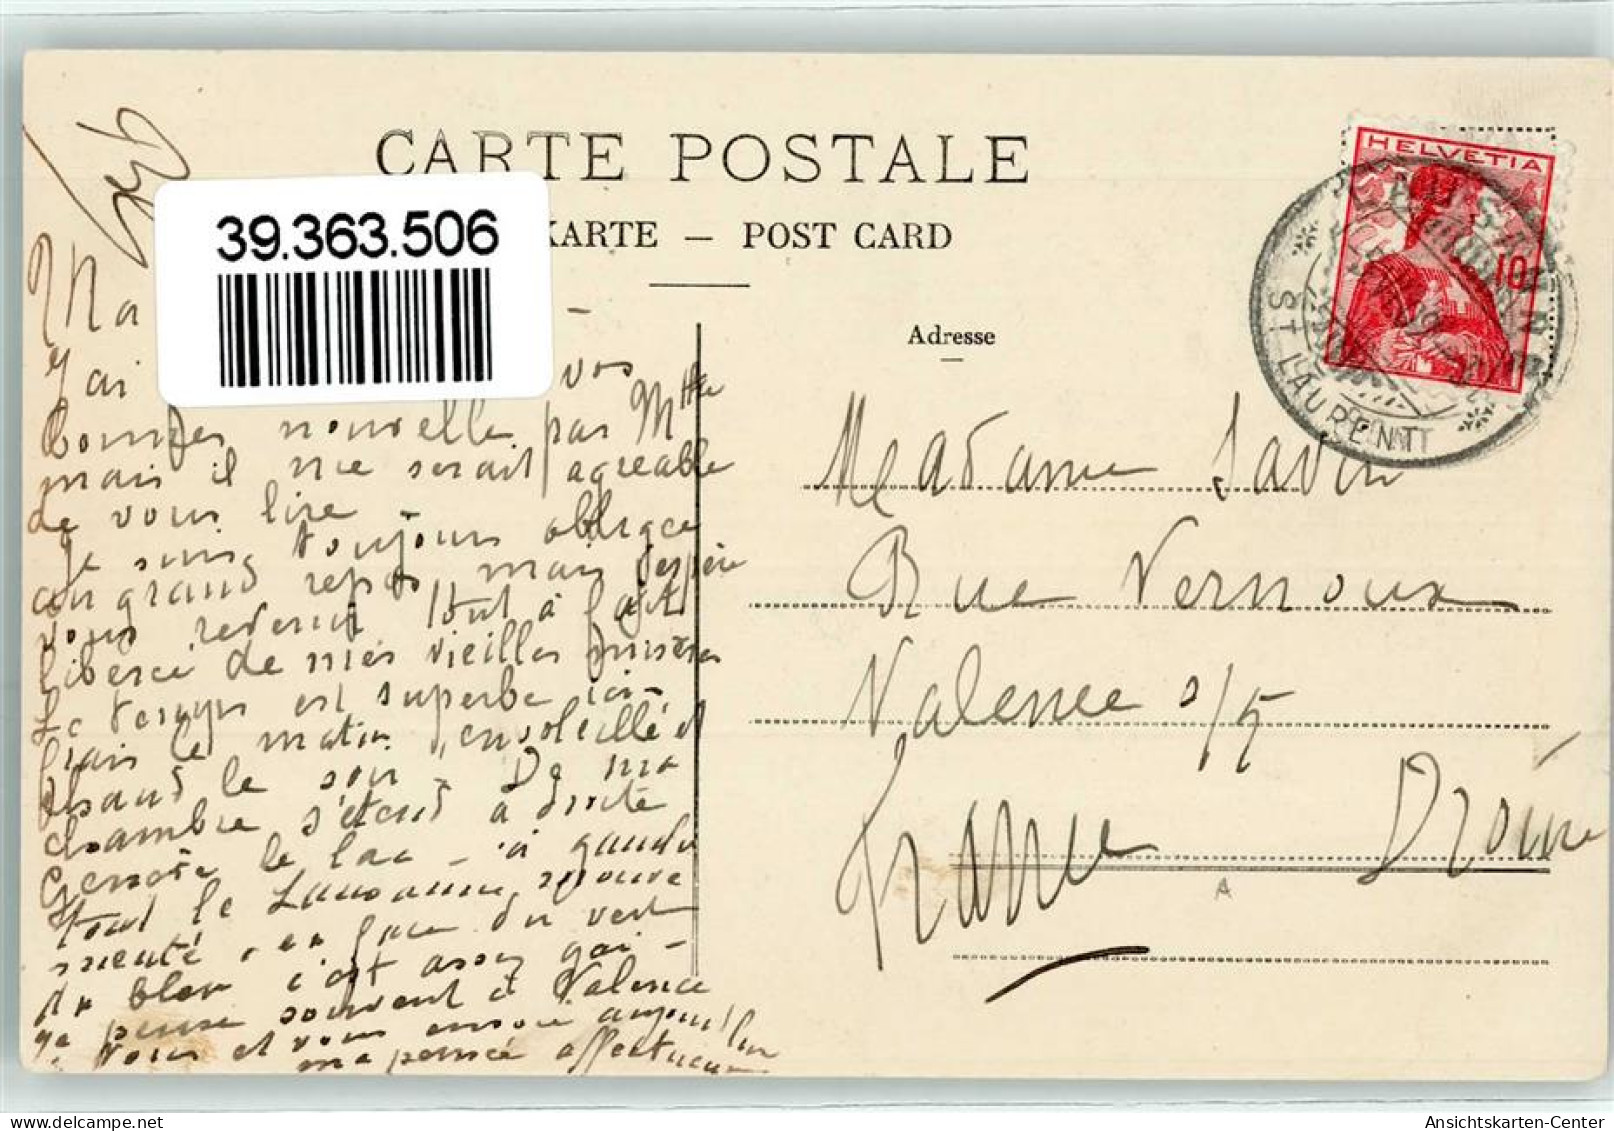 CARTE POSTALE
39.363.506
KARTE — POST CARD
Adresse
HELVETIA
10
LAUSANNE
ST LAURENT
Madame Savin
Rue Vernoux
Valence s/
France Drôme
A
Ma
J'ai vos
bonnes nouvelles par Mlle
mais il me serait agreable
de vous lire
Je suis toujours obligee
au grand repos mais j'espère
vous revenir tout à fait
libérée de mes vieilles misères
Le temps est superbe ici -
frais le matin, ensoleillé et
chaud le soir - De ma
chambre s'étend à droite
le lac - à gauche
tout le Lausanne,
orienté, en face du vert
du bleu c'est assez gai -
Je pense souvent à Valence
à vous et vous envoie aujourd'hui
ma pensée affectueuse
Ansichtskarten-Center